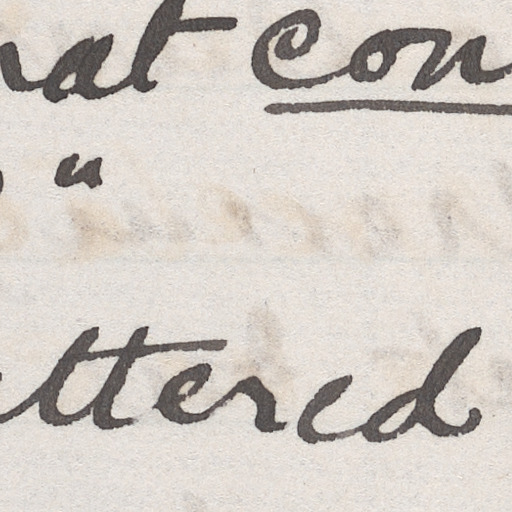 hat con
"
ttered